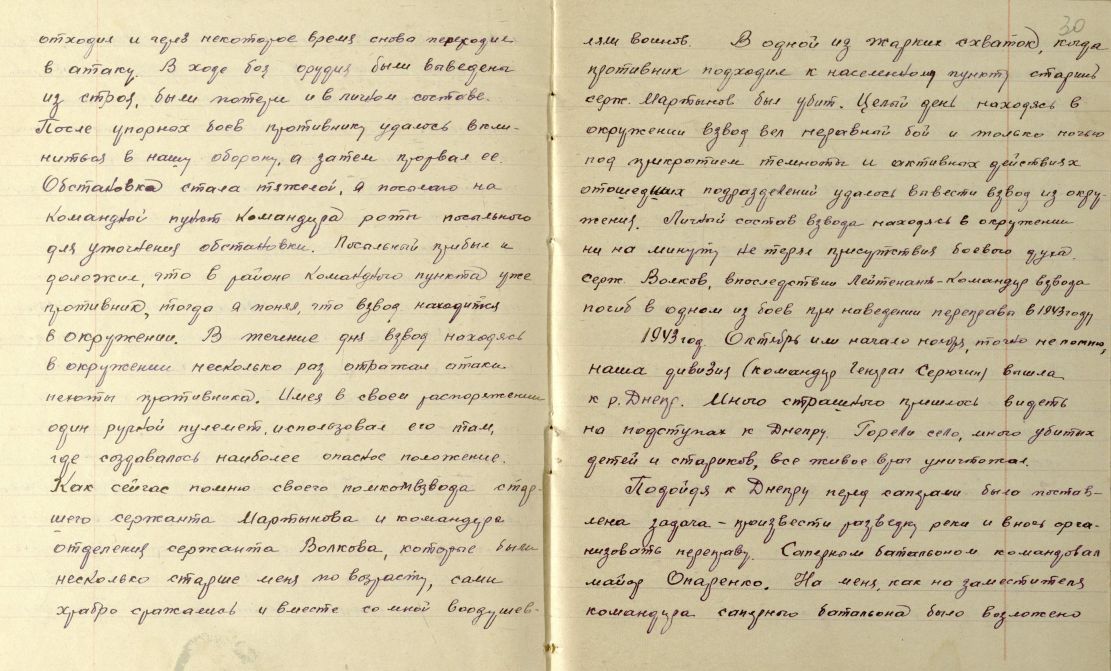 отходил и через некоторое время снова переходил
в атаку. В ходе боя орудия были выведены
из строя, были потери и в личном составе.
После упорных боев противнику удалось вкли-
ниться в нашу оборону, а затем прорвал ее.
Обстановка стала тяжелой, я посылаю на
командный пункт командира роты посыльного
для уточнения обстановки. Посыльный прибыл и
доложил, что в районе командного пункта уже
противник, тогда я понял, что взвод находится
в окружении. В течение дня взвод находясь
в окружении несколько раз отражал атаки
пехоты противника. Имея в своем распоряжении
один ручной пулемет, использовал его там,
где создавалось наиболее опасное положение.
Как сейчас помню своего помкомвзвода стар-
шего сержанта Мартынова и командира
отделения сержанта Волкова, которые были
несколько старше меня по возрасту, сами
храбро сражались и вместе со мной воодушев-
30
ляли воинов. В одной из жарких схваток, когда
противник подходил к населенному пункту старший
серж. Мартынов был убит. Целый день находясь в
окружении взвод вел неравный бой и только ночью
под прикрытием темноты и активных действиях
отошедших подразделений удалось вывести взвод из окру-
жения. Личный состав взвода находясь в окружении
ни на минуту не терял присутствия боевого духа.
серж. Волков, впоследствии Лейтенант-командир взвода
погиб в одном из боев при наведении переправы в 1943 году
1943 год. Октябрь или начало ноября, точно не помню,
наша дивизия (командир Генерал Серюгин) вышла
к р. Днепр. Много страшного пришлось видеть
на подступах к Днепру. Горели село, много убитых
детей и стариков, все живое враг уничтожал.
Подойдя к Днепру перед саперами была постав-
лена задача - произвести разведку реки и вновь орга-
низовать переправу. Саперным батальоном командовал
майор Опаренко. На меня, как на заместителя
командира саперного батальона было возложено